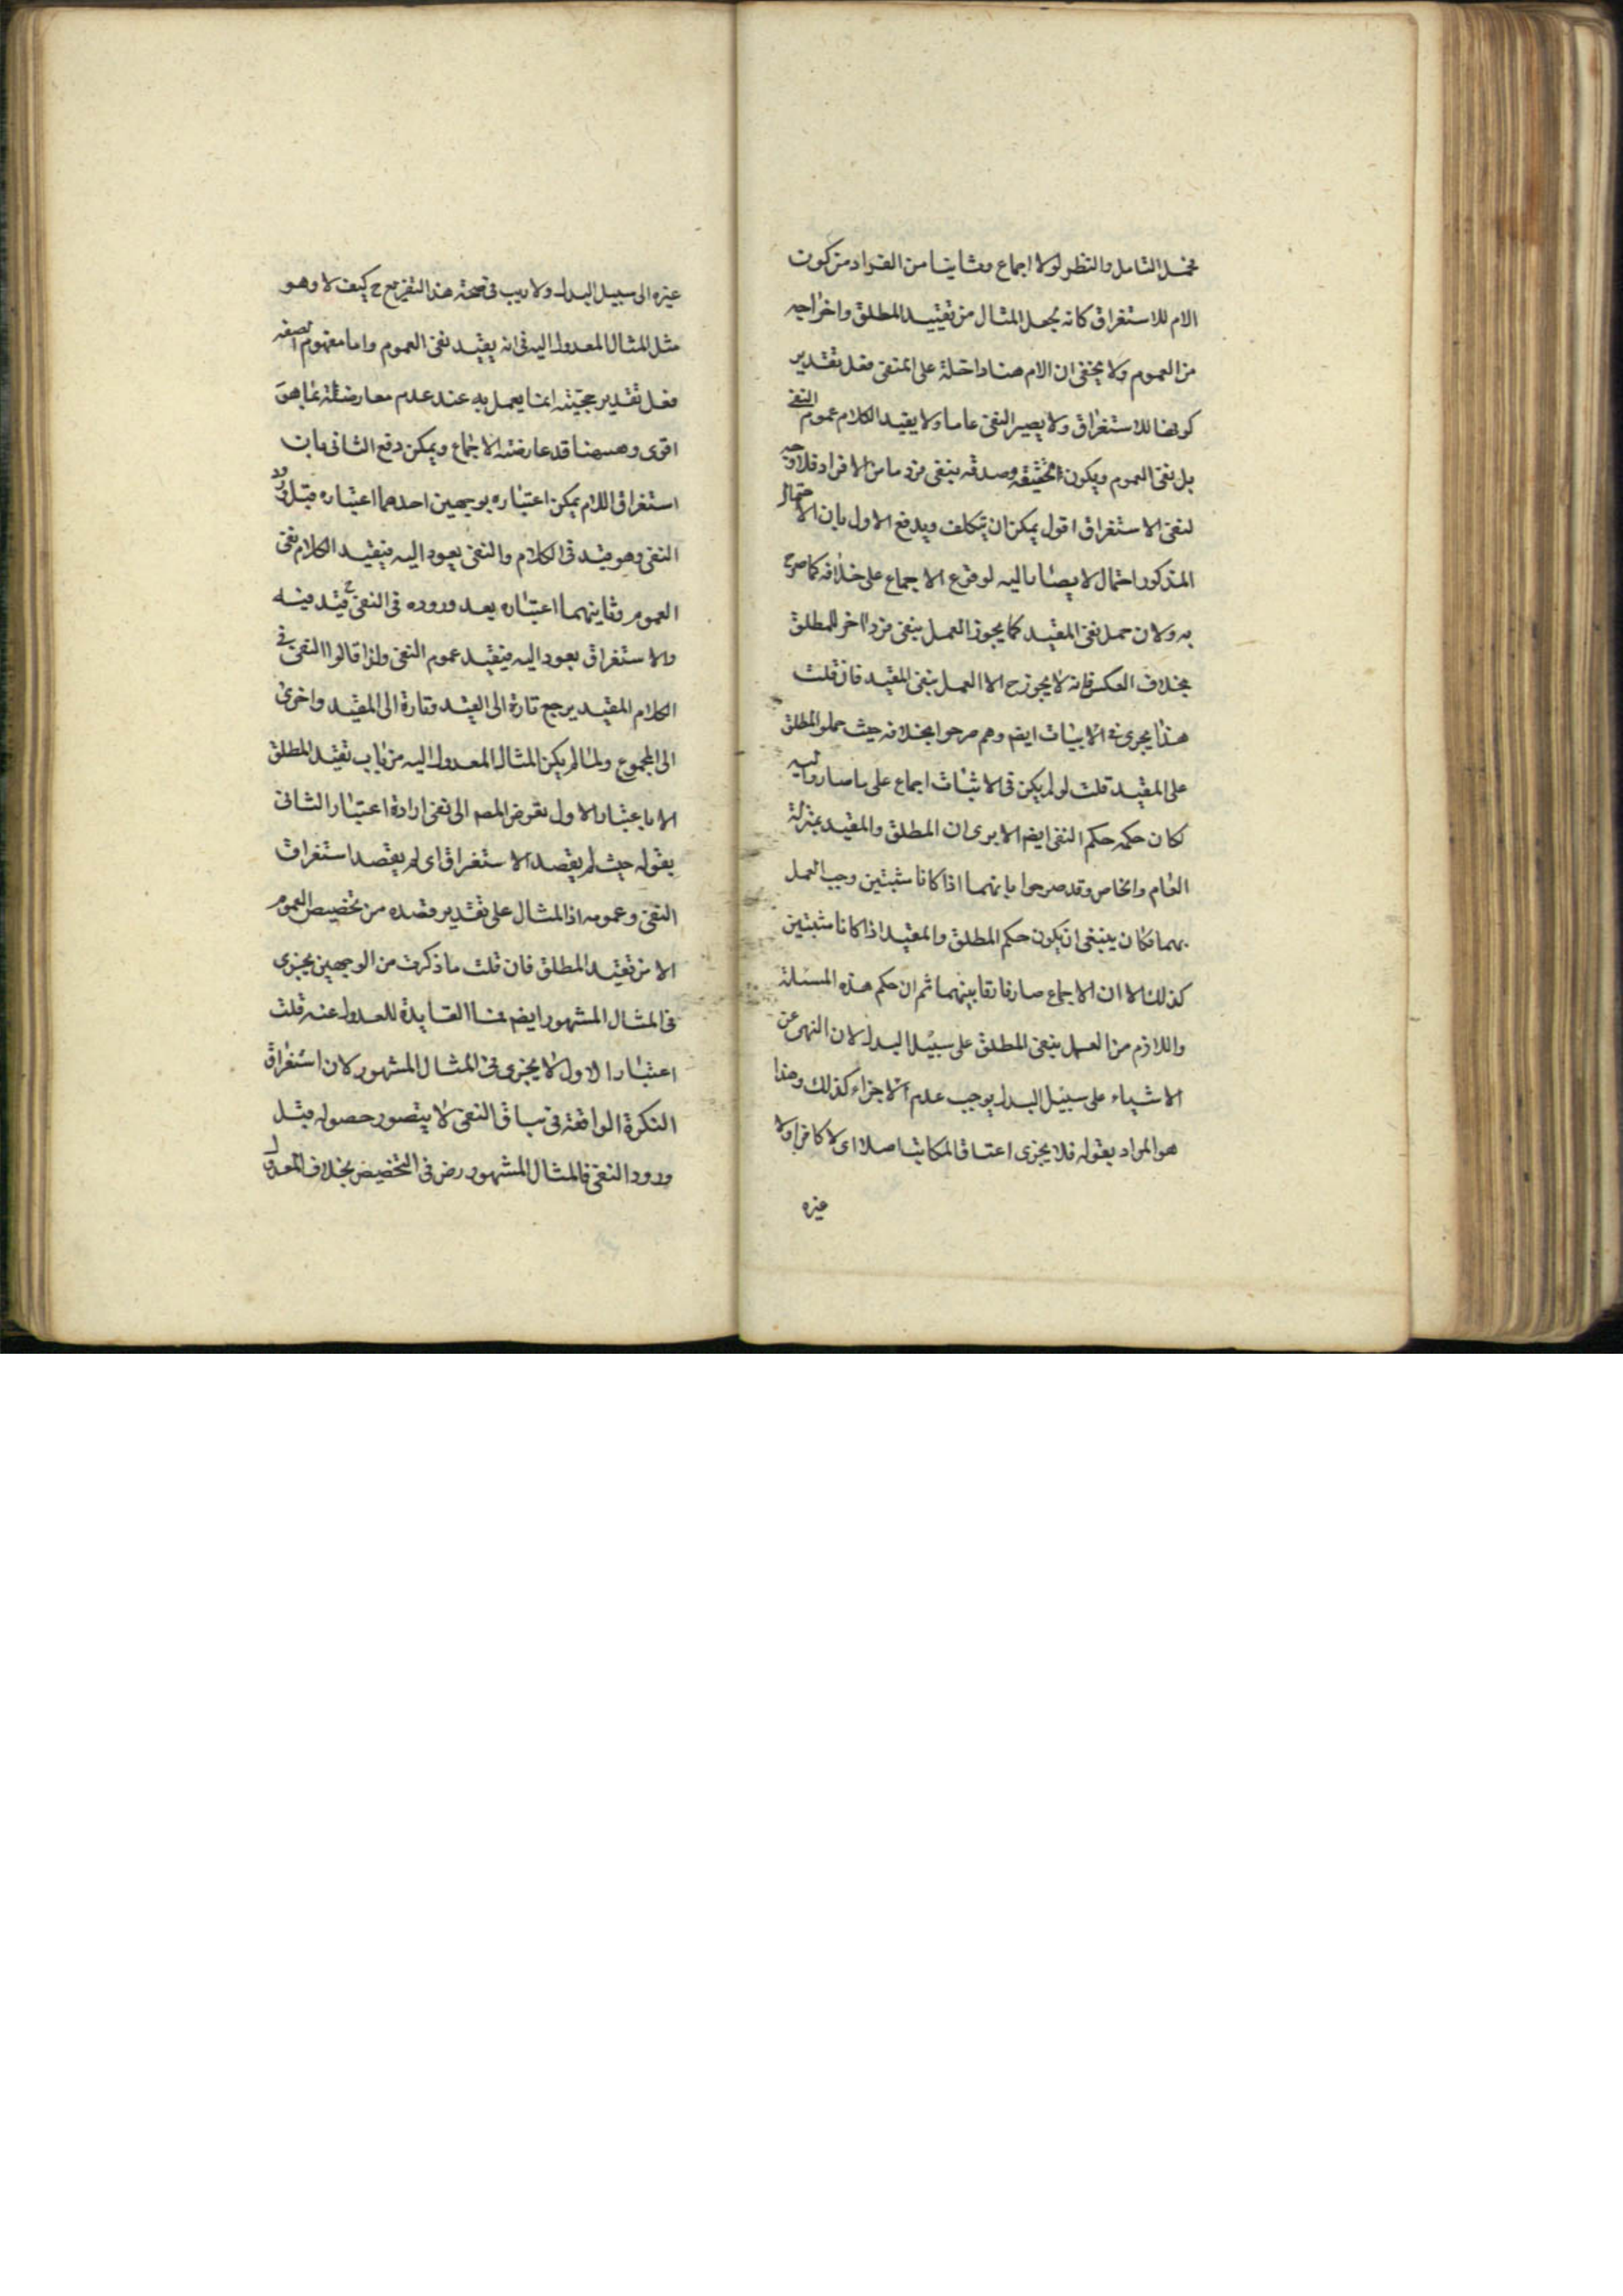 محل التامل والنظر لولا اجماع وثانيا من الفواد من كون
الام للاستغراق كانه يجعل المثال من تقييد المطلق واخراجه
من العموم ولا يخفى ان الام هنا داخلة على المنفى فعلى تقدير
كونها للاستغراق ولا يصير النفى عاما ولا يفيد الكلام عموم النفى
بل نفى العموم ويكون الحقيقة وصدقه بنفى فرد ما من الافراد فلا وجه
لنفى الاستغراق اقول يمكن ان يتكلف ويدفع الاول بان الاحتمال
المذكور احتمال لا يصار اليه لوقوع الاجماع على خلافه كما صرح
به ولان حمل نفى المقيد كما يجوز العمل بنفى فرد اخر للمطلق
بخلاف العكس فانه لا يجوز ح الا العمل بنفى المقيد فان قلت
هذا يجرى فى الاثبات ايضم وهم صرحوا بخلافه حيث حملو المطلق
على المقيد قلت لو لم يكن فى الاثبات اجماع على ما صاروا اليه
لكان حكمه حكم النفى ايضم الا يرى ان المطلق والمقيد بمنزلة
العام والخاص وقد صرحوا بانهما اذا كانا مثبتين وجب العمل
بهما فكان ينبغى ان يكون حكم المطلق والمقيد اذا كانا مثبتين
كذلك الا ان الاجماع صار فارقا بينهما ثم ان حكم هذه المسئلة
واللازم من العمل بنفى المطلق على سبيل البدل لان النهى عن
الاشياء على سبيل البدل يوجب عدم الاجزاء كذلك وهذا
هو المراد بقوله فلا يجزى اعتاق المكاتب اصلا اى لا كافرا ولا
غيره
غيره الى سبيل البدل ولا ريب فى صحة هذا التفريع ح كيف لا وهو
مثل المثال المعدول اليه فى انه يفيد نفى العموم واما مفهوم الصفة
فعلى تقدير حجيته انما يعمل به عند عدم معارضته بما هو
اقوى وههنا قد عارضه الاجماع ويمكن دفع الثانى بان
استغراق اللام يمكن اعتباره بوجهين احدهما اعتباره قبل ورود
النفى وهو قيد فى الكلام والنفى يعود اليه فيفيد الكلام نفى
العموم وثانيهما اعتباره بعد وروده فى النفى ح قيد فيه
والاستغراق يعود اليه فيفيد عموم النفى ولذا قالوا النفى فى
الكلام المقيد يرجع تارة الى القيد وتارة الى المقيد واخرى
الى المجموع ولما لم يكن المثال المعدول اليه من باب تقيد المطلق
الا باعتبار الاول تعرض المصم الى نفى ارادة اعتبار الثانى
بقوله حيث لم يقصد الاستغراق اى لم يقصد استغراق
النفى وعمومه اذ المثال على تقدير قصده من تخصيص العموم
لا من تقيد المطلق فان قلت ما ذكرت من الوجهين يجزى
فى المثال المشهور ايضم فما الفايدة للعدول عنه قلت
اعتبار الاول لا يجزى فى المثال المشهور لان استغراق
النكرة الواقعة فى سياق النفى لا يتصور حصوله قبل
ورود النفى فالمثال المشهور رض فى التخصيص بخلاف المعدول